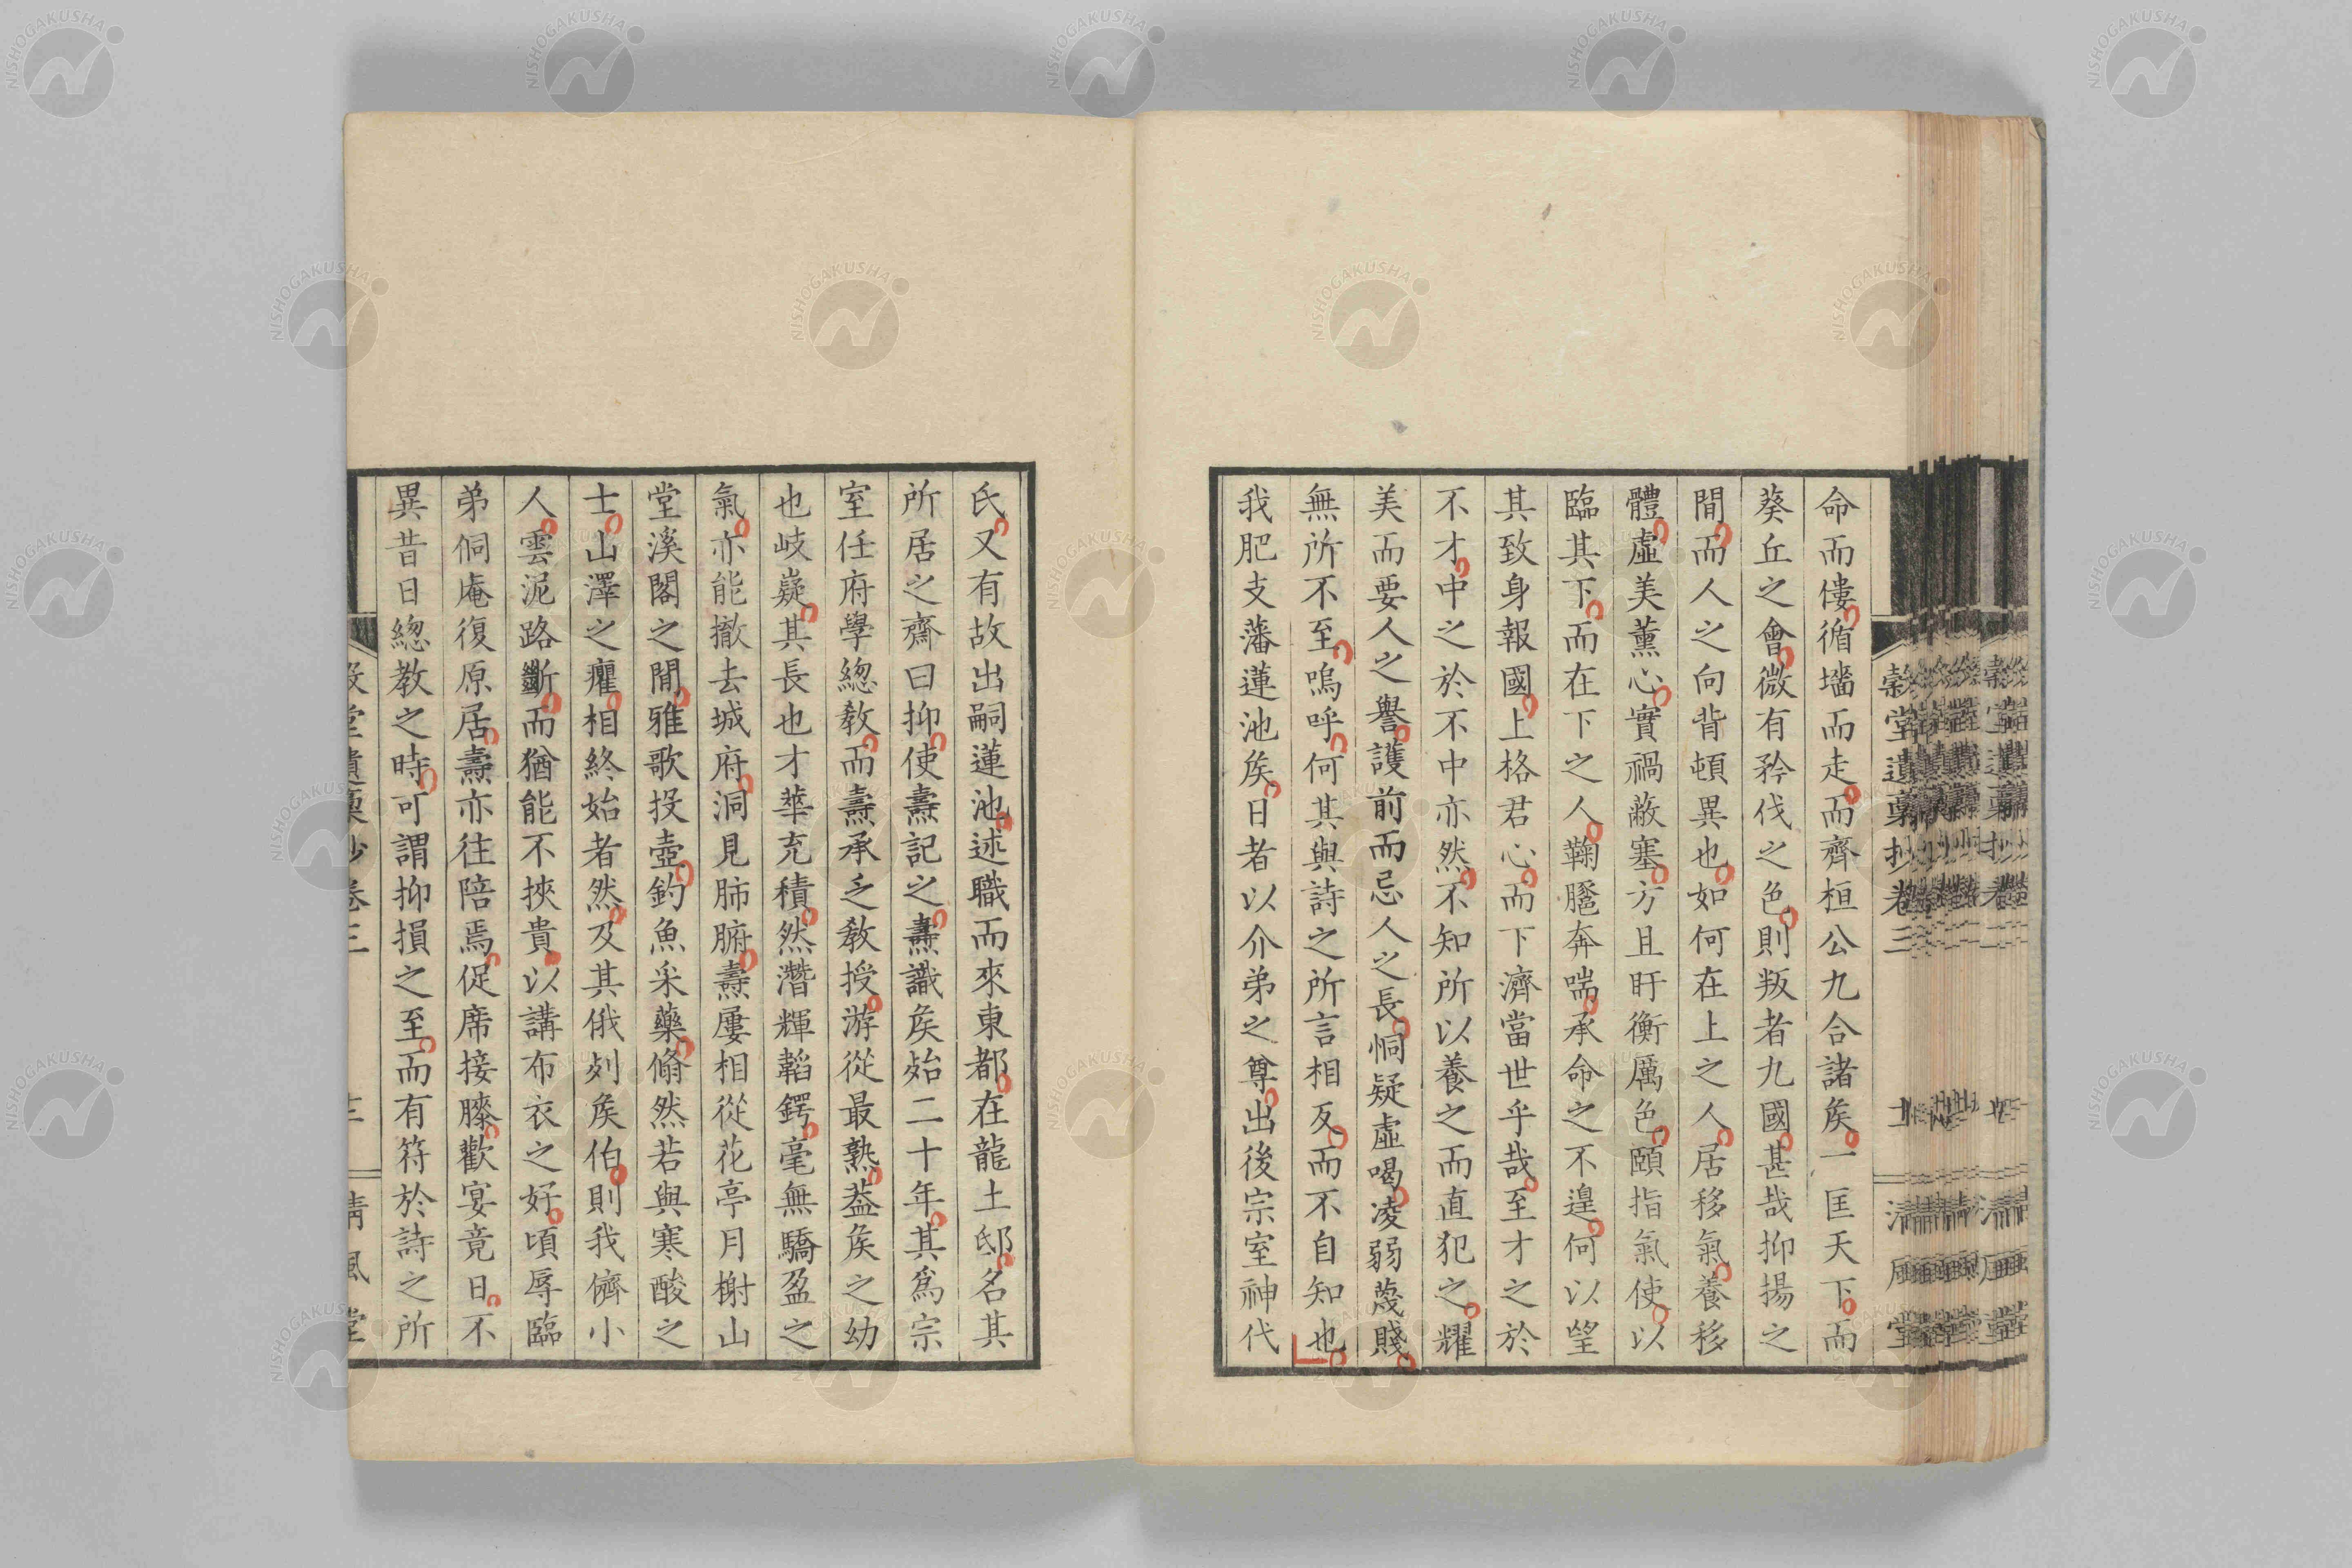 命而僂循墻而走而齊桓公九合諸矦一匡天下而
葵丘之會微有矜伐之色則叛者九國甚哉抑揚之
間而人之向背頓異也如何在上之人居移氣養移
體虛美薰心實禍蔽塞方且盱衡厲色頤指氣使以
臨其下而在下之人鞠躬奔喘承命之不遑何以望
其致身報國上格君心而下濟當世乎哉至才之於
不才中之於不中亦然不知所以養之而直犯之耀
美而要人之譽護前而忌人之長恫疑虛喝凌弱蔑賤
無所不至嗚呼何其與詩之所言相反而不自知也
我肥支藩蓮池矦日者以介弟之尊出後宗室神代
氏又有故出嗣蓮池述職而來東都在龍土邸名其
所居之齋曰抑使燾記之燾識矦始二十年其爲宗
室任府學總教而燾承乏教授游從最熟葢矦之幼
也岐嶷其長也才華充積然潛輝韜鍔毫無驕盈之
氣亦能撤去城府洞見肺腑燾屢相從花亭月榭山
堂溪閣之間雅歌投壺釣魚采藥翛然若與寒酸之
士山澤之癯相終始者然及其俄列矦伯則我儕小
人雲泥路斷而猶能不挾貴以講布衣之好頃辱臨
弟侗庵復原居燾亦往陪焉促席接膝歡宴竟日不
異昔日總教之時可謂抑損之至而有符於詩之所
穀堂遺稾抄卷三
清風堂
NISHOGAKUSHA